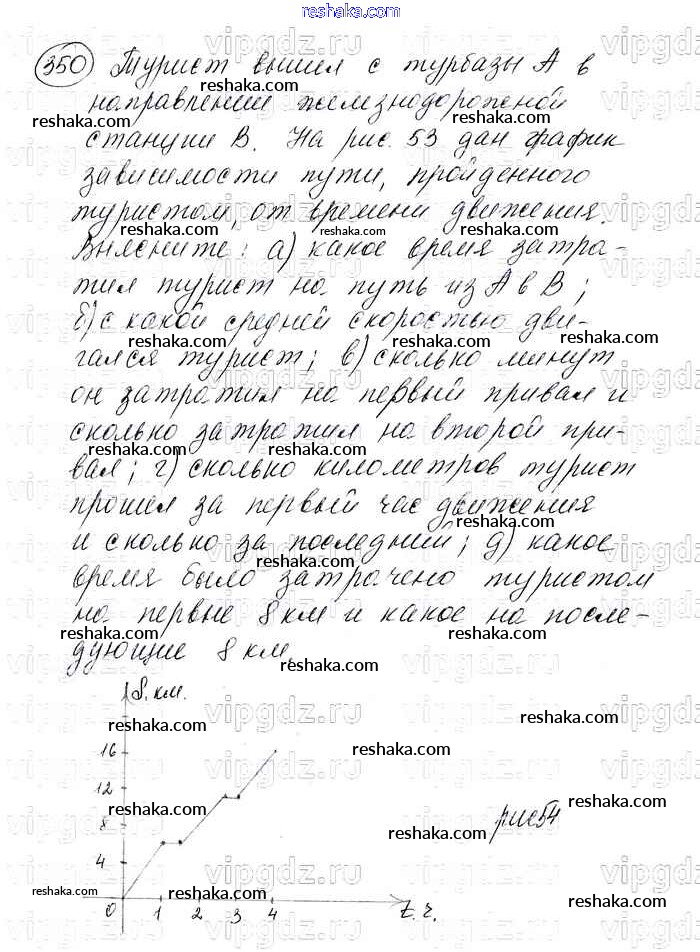 reshaka.com
350 Турист вышел с турбазы А в
направлении железнодорожной
станции В. На рис. 53 дан график
зависимости пути, пройденного
туристом, от времени движения.
Выясните: а) какое время затра-
тил турист на путь из А в В;
б) с какой средней скоростью дви-
гался турист; в) сколько минут
он затратил на первый привал и
сколько затратил на второй при-
вал; г) сколько километров турист
прошел за первый час движения
и сколько за последний; д) какое
время было затрачено туристом
на первые 8 км и какое на после-
дующие 8 км.
S, км.
16
12
8
4
0 1 2 3 4 t. ч.
рис 54
vipgdz.ru
reshaka.com